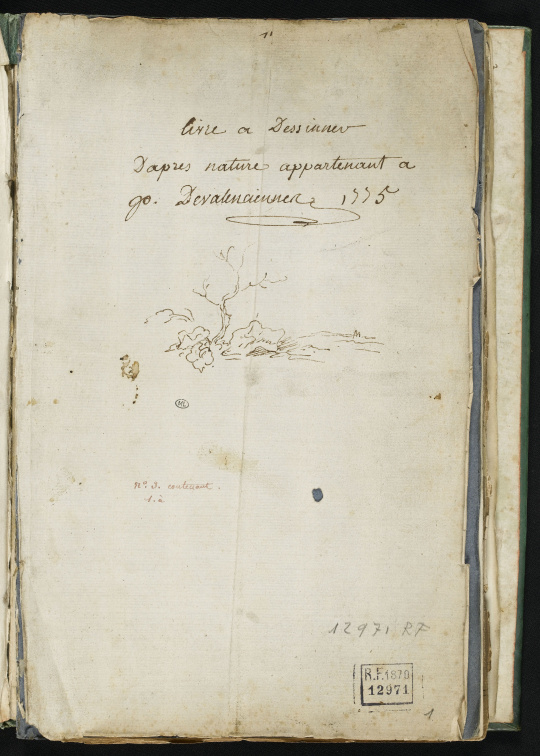 1
livre a Dessinner
Dapres nature appartenant a
po. Devalenciennes 1775
ML
N° 3. contenant.
1. à
12971 RF
R.F.1870
12971
1